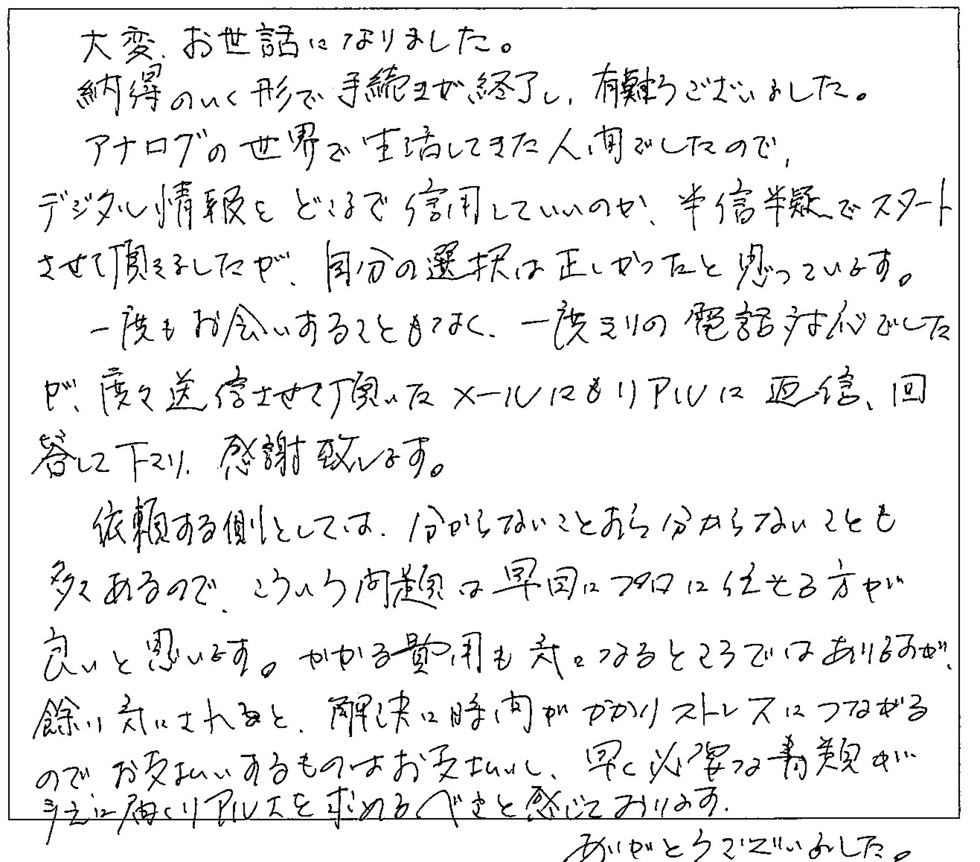 大変、お世話になりました。
納得のいく形で手続きが終了し、有難うございました。
アナログの世界で生活してきた人間でしたので、
デジタル情報をどこまで信用していいのか、半信半疑でスタート
させて頂きましたが、自分の選択は正しかったと思っています。
一度もお会いすることもなく、一度きりの電話対応でした
が、度々送信させて頂いたメールにもリアルに返信、回
答して下さり、感謝致します。
依頼する側としては、分からないことすら分からないことも
多々あるので、こういう問題は早目にプロに任せる方が
良いと思います。かかる費用も気になるところではありますが、
余り気にされると、解決に時間がかかりストレスにつながる
のでお支払いするものはお支払いし、早く必要な書類が
手元に届くリアルさを求めるべきと感じております。
ありがとうございました。